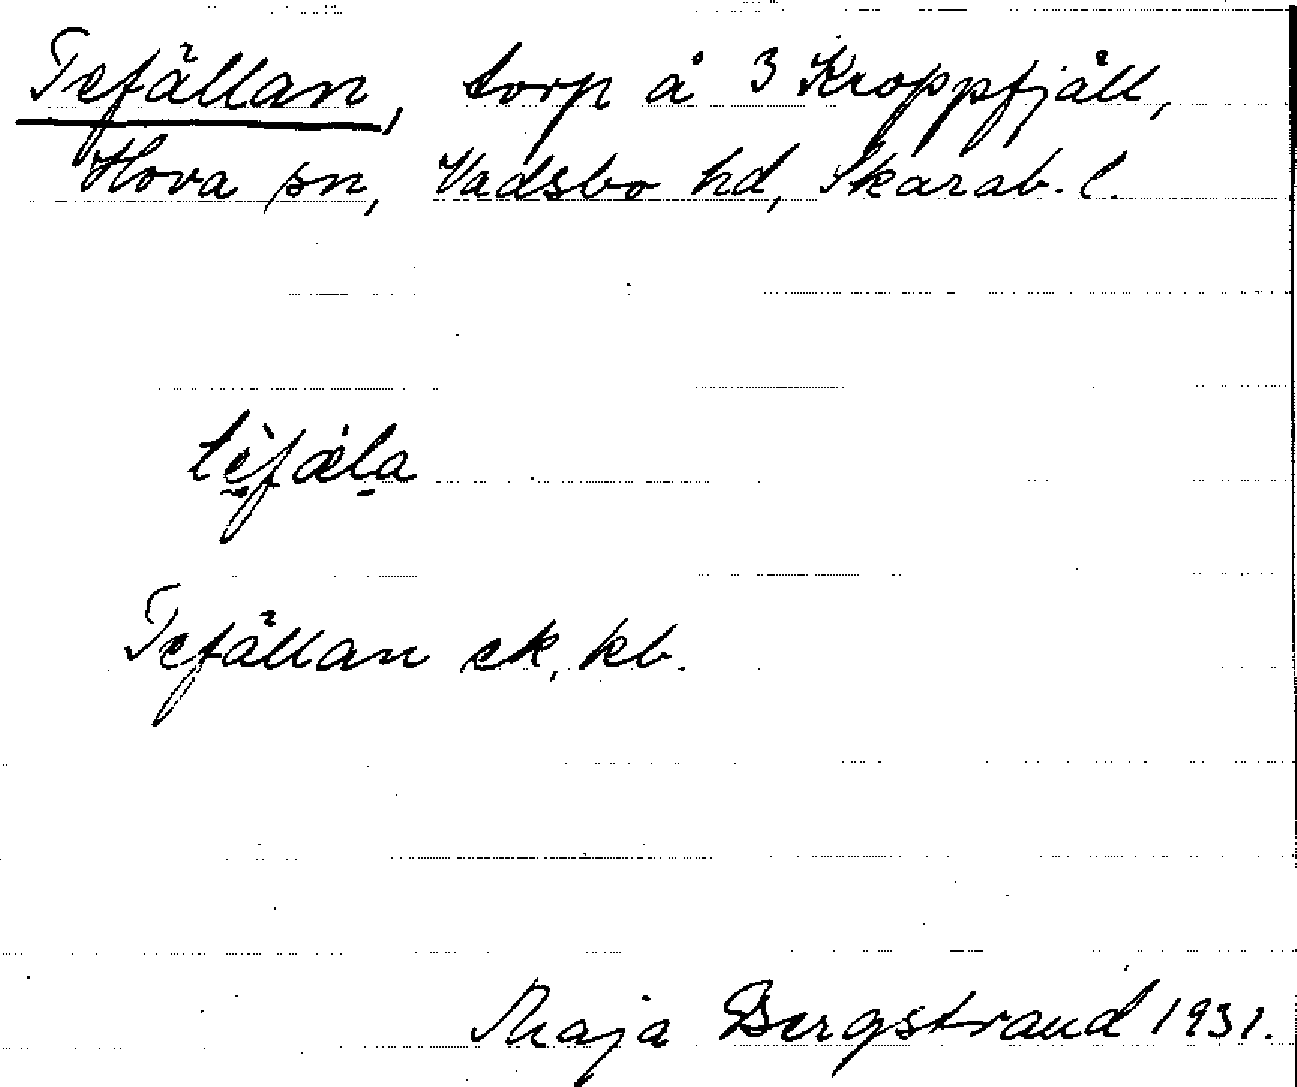 Tefällan, torp å 3 Kroppfjäll,
Hova sn, Vadsbo hd, Skarab. l.
tè̱fæ̀l̠a
Tefällan ek, kb.
Maja Bergstrand 1931.